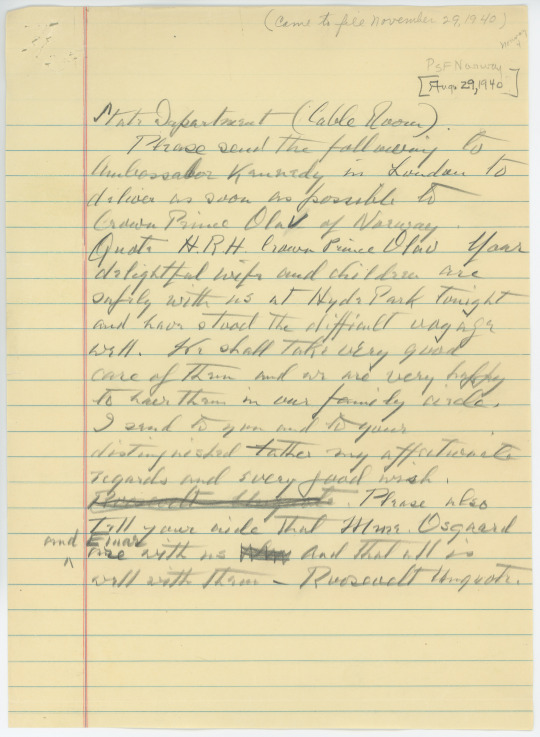 (Came to file November 29, 1940)
Norway
PSF Norway
[Aug. 29, 1940]
State Department (Cable Room).
Please send the following to
Ambassador Kennedy in London to
deliver as soon as possible to
Crown Prince Olav of Norway.
Quote H.R.H Crown Prince Olav Your
delightful wife and children are
safely with us at Hyde Park tonight
and have stood the difficult voyage
well. We shall take very good
care of them and we are very happy
to have them in our family circle.
I send to you and to your
distinguished father my affectionate
regards and every good wish.
Roosevelt Unquote. Please also
tell your aide that Mme. Osgaard
and Einar
are with us and that all is
well with them — Roosevelt Unquote.